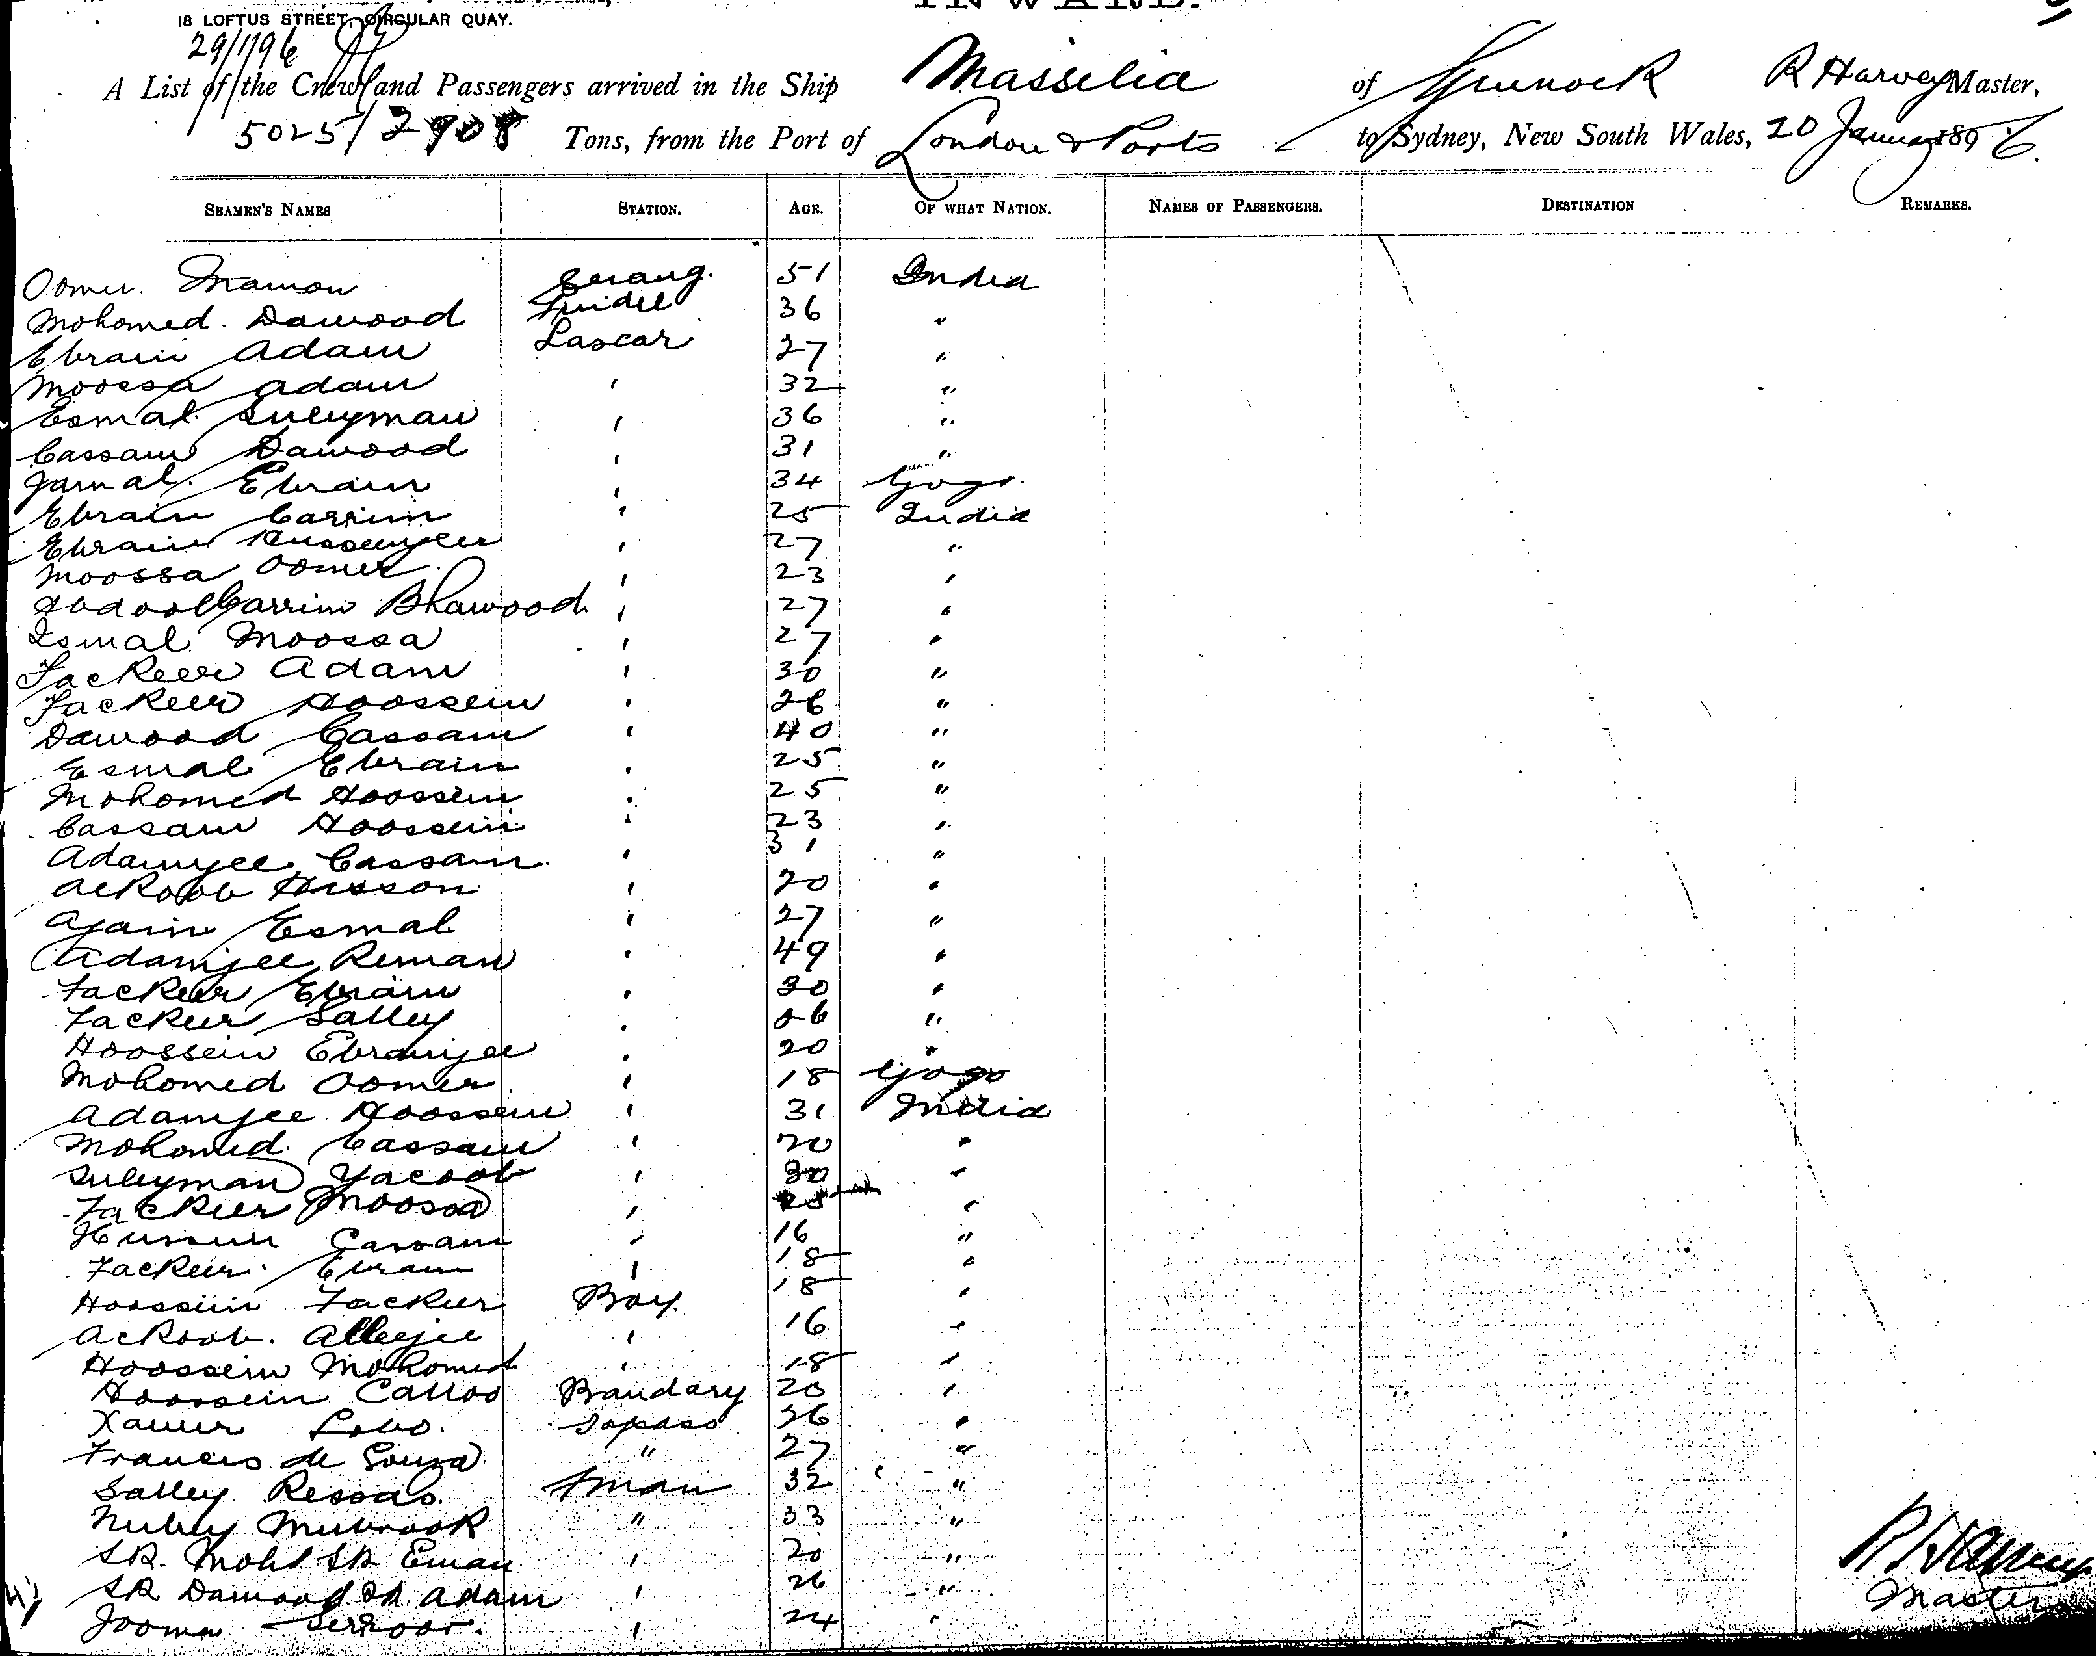 INWARD.
18 LOFTUS STREET, CIRCULAR QUAY.
29/1/96
A List of the Crew and Passengers arrived in the Ship Massilia of Greenock R Harvey Master,
5025/2908 Tons, from the Port of London & Ports to Sydney, New South Wales, 20 January 1896.
SEAMEN'S NAMES STATION. AGE. OF WHAT NATION. NAMES OF PASSENGERS. DESTINATION REMARKS.
Oomer Mamon Serang. 51 India
Mohomed. Dawood Tindel 36 "
Ebraim Adam Lascar 27 "
Moossa Adam " 32 "
Esmal Suleyman " 36 "
Cassam Dawood " 31 "
Jamal. Ebraim " 34 Gogo.
Ebraim Carrim " 25 India
Ebraim " 27 "
Moossa Oomer " 23 "
Abdool Carrim Bhawood " 27 "
Ismal Moossa " 27 "
Fackeer Adam " 30 "
Fackeer Hoossein " 26 "
Dawood Cassam " 40 "
Esmal Ebraim " 25 "
Mohomed Hoossein " 25 "
Cassam Hoossein " 23 "
Adamjee Cassam " 31 "
Ackoob Hisson " 20 "
Ajam Esmal " 27 "
Adamjee Reman " 49 "
Fackeer Ebraim " 30 "
Fackeer Salley " "
Hoossein Ebramjee " 20 "
Mohomed Oomer " 18 Gogo
Adamjee Hoossein " 31 India
Mohomed Cassam " 20 "
Suleyman Yacoob " 30 "
Fackeer Moossa " 25 "
Hussein Cassam " 16 "
Fackeer Ebram " 18 "
Hoossein Fackeer Boy. 18 "
Ackoob. Alleejee " 16 "
Hoossein Mohomed " 18 "
Hoossein Bandary 20 "
Xavier Lobo. Topass 26 "
Francis de Souza " 27 "
Salley Ressab Fman 32 "
Mubrook " 33 "
SR. Mohd SR Eman " 20 "
SR Dawood SR Adam " 26 "
Jooma " 24 "
R Harvey
Master